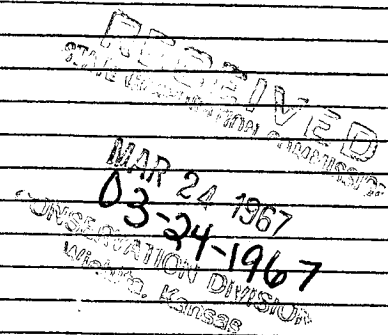 RECEIVED
STATE CORPORATION COMMISSION
MAR 24 1967
03-24-1967
CONSERVATION DIVISION
Wichita, Kansas